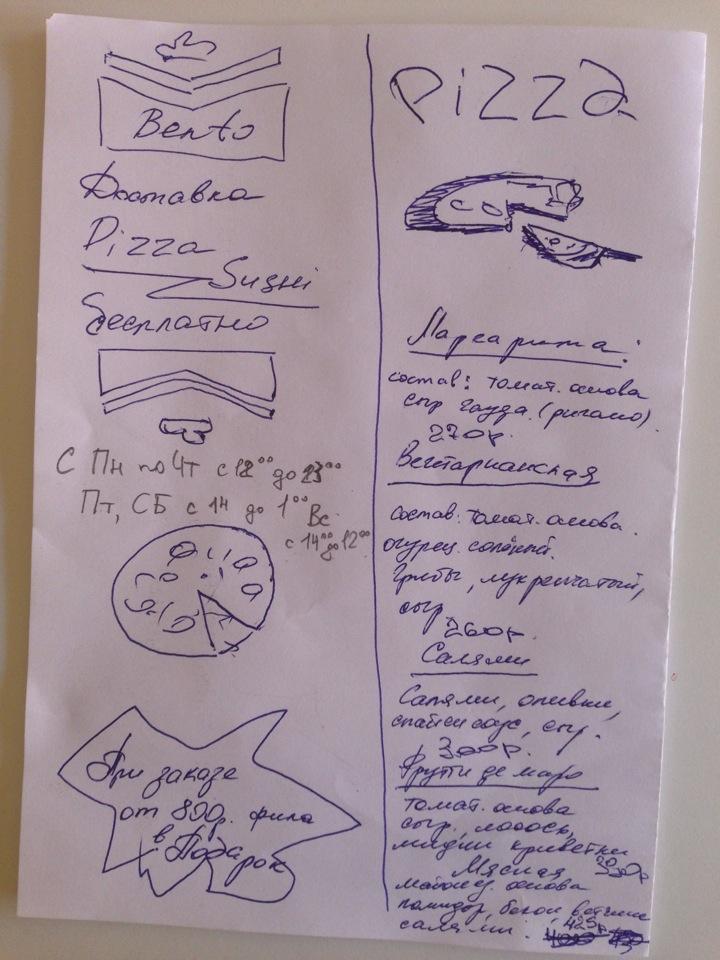 Bento
Доставка
Pizza
Sushi
Бесплатно
С Пн по Чт с 12⁰⁰ до 23⁰⁰
Пт, СБ с 14 до 1⁰⁰ Вс
с 14⁰⁰ до 12⁰⁰
При заказе
от 800р. фила
в Подарок
PiZZa
Маргарита:
состав: томат. основа
сыр гауда. (ригано).
270р.
Вегтарианская
состав: томат. основа.
огурец. солёный.
Грибы, лук репчатый,
сыр
260р.
Салями
Салями, оливки,
спайси соус, сыр.
300р.
Фрутти де маре
томат. основа
сыр, лосось,
мидии креветки
Мясная
майонез. основа
помидор, бекон, ветчина
425р
салями.